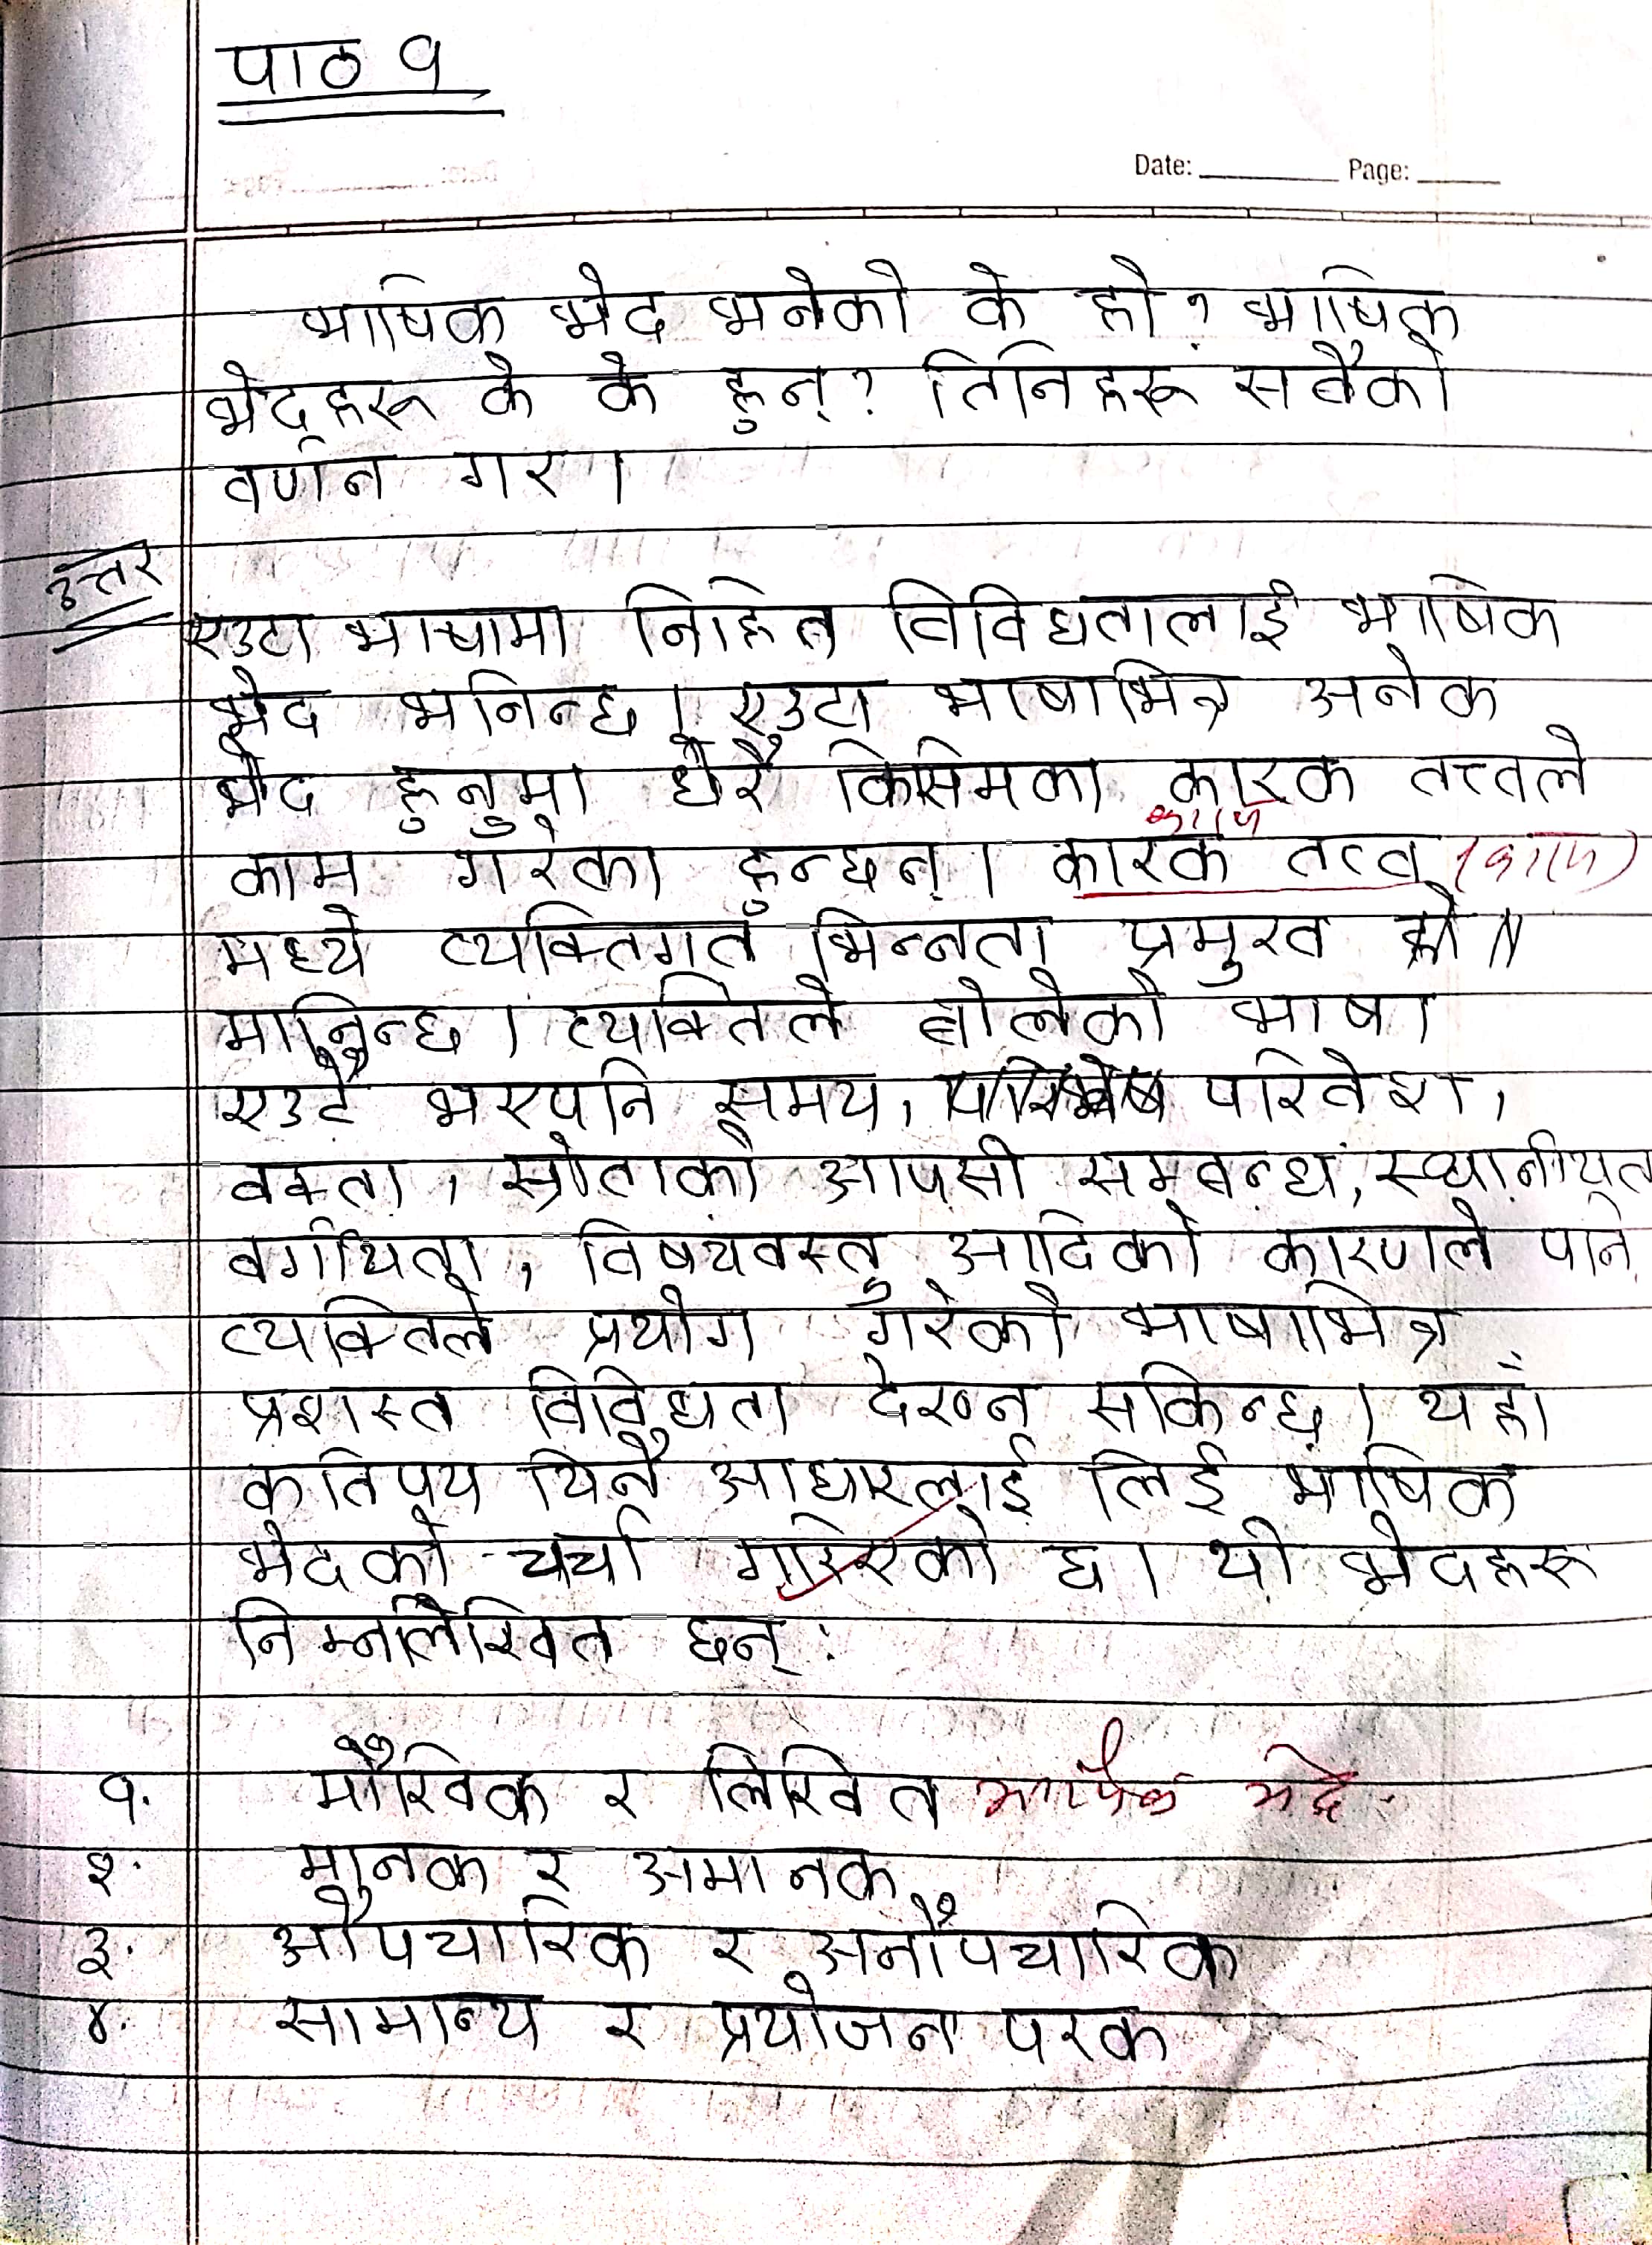 पाठ १
Date: Page:
भाषिक भेद भनेको के हो ? भाषिक
भेदहरू के के हुन् ? तिनिहरू सबैको
वर्णन गर ।
उत्तर
एउटा भाषामा निहित विविधतालाई भाषिक
भेद भनिन्छ । एउटा भाषाभित्र अनेक
भेद हुनुमा धेरै किसिमका कारक तत्त्वले
काम गरेका हुन्छन् । कारक तत्व
मध्ये व्यक्तिगत भिन्नता प्रमुख
मानिन्छ । व्यक्तिले बोलेको भाषा
एउटै भएपनि समय, परिवेश,
वक्ता, स्रोताको आपसी सम्बन्ध, स्थानीयता
वर्गीयता, विषयवस्तु आदिको कारणले पनि
व्यक्तिले प्रयोग गरेको भाषाभित्र
प्रशस्त विविधता देख्न सकिन्छ । यहाँ
कतिपय यिनै आधारलाई लिई भाषिक
भेदको चर्चा गरिएको छ । यी भेदहरू
निम्नलिखित छन् :
१. मौखिक र लिखित
२. मानक र अमानक
३. औपचारिक र अनौपचारिक
४. सामान्य र प्रयोजन परक